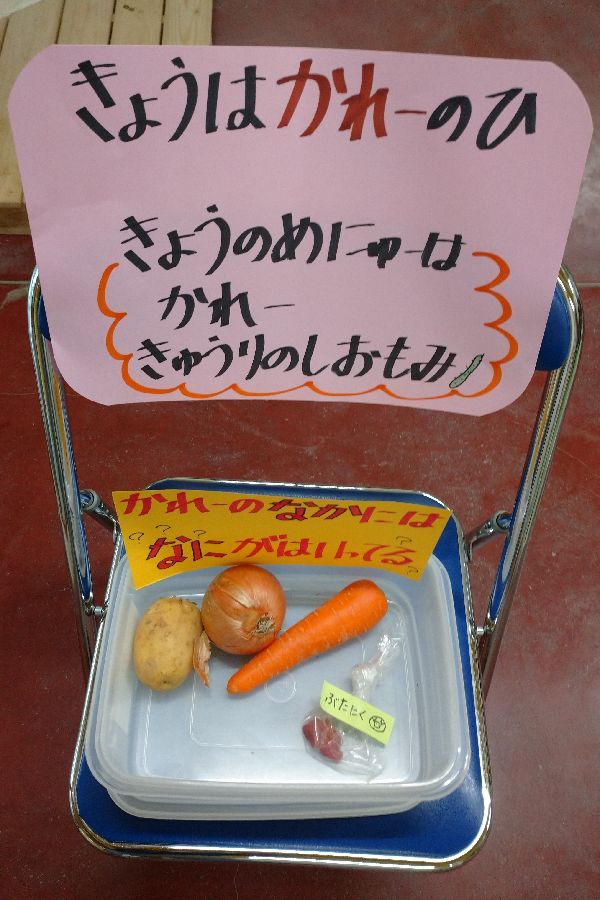 きょうはかれーのひ
きょうのめにゅーは
かれー
きゅうりのしおもみ
かれーのなかには
なにがはいってる
ぶたにく